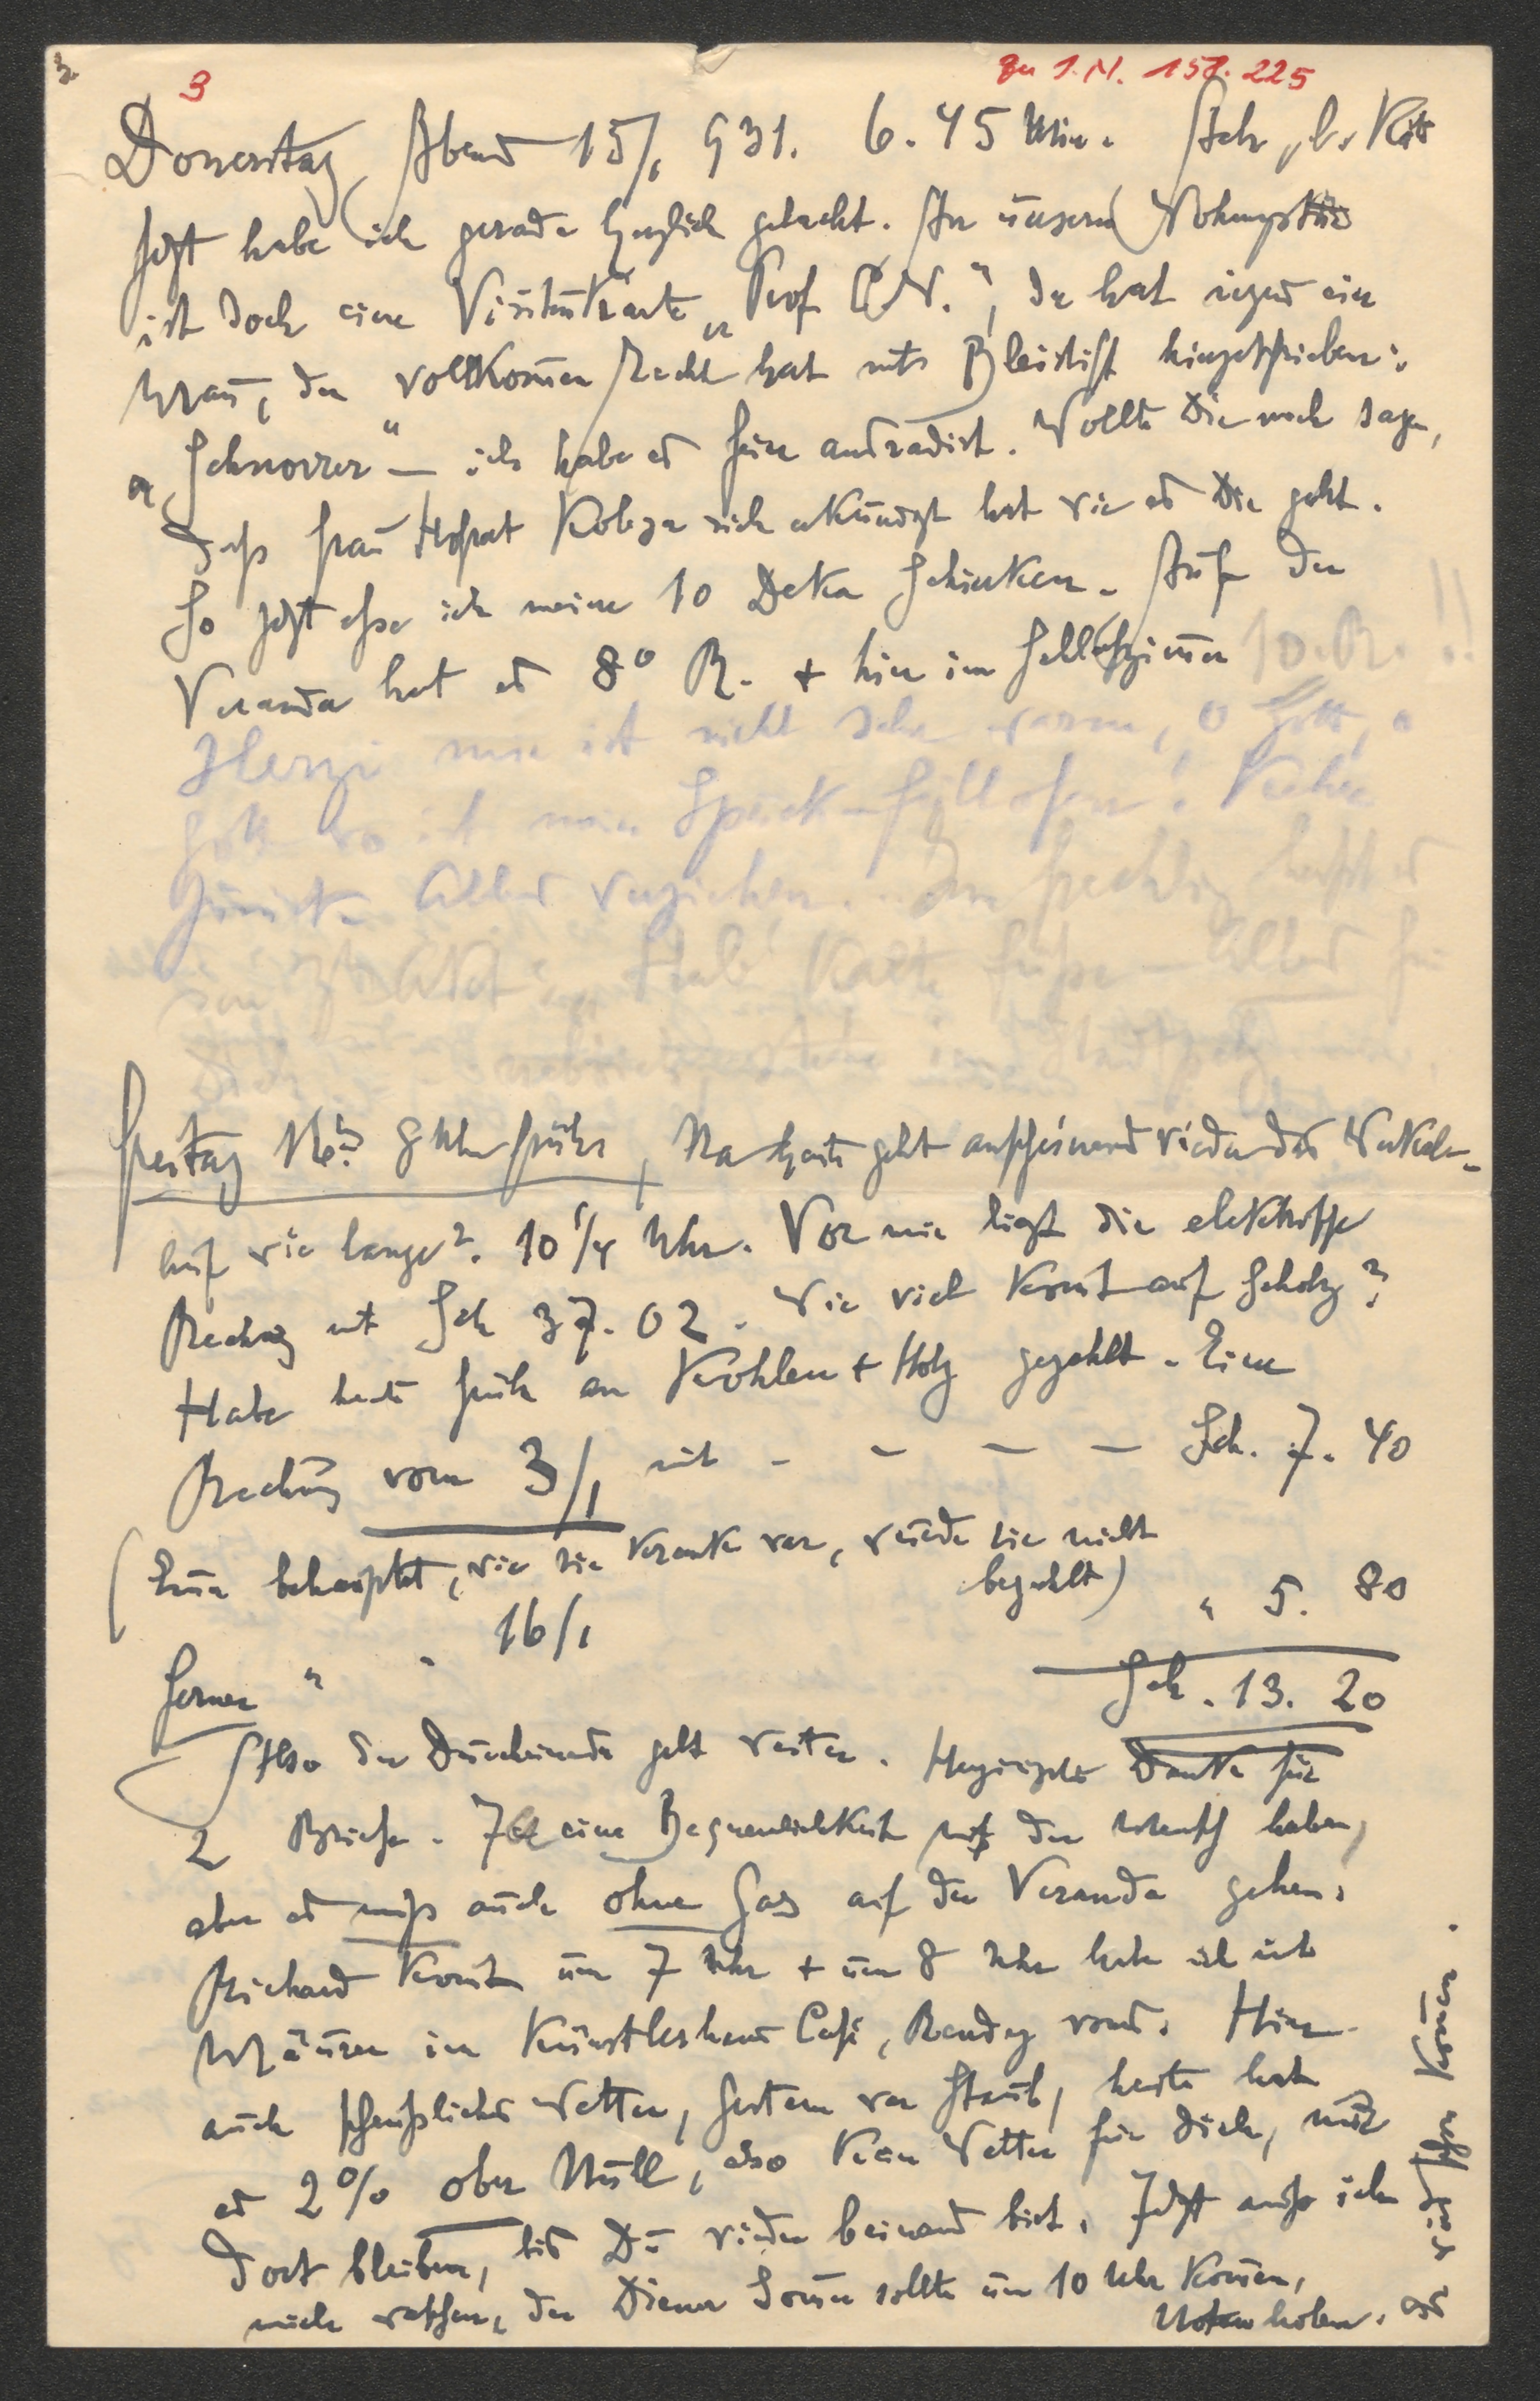 3
zu I.N. 158.225
Donnerstag Abend 15/1 931. 6.45 Min.
Jetzt habe ich gerade herzlich gelacht. An unserer
ist doch eine Visitenkarte „Prof. C. W.", da hat irgend ein
Mann, der vollkommen Recht hat mit Bleistift hingeschrieben:
„Schnorrer" – ich habe es fein ausradirt. Wollte Dir noch sagen,
dass Frau Hofrat Kobza sich erkundigt hat wie es Dir geht.
So jetzt esse ich meine 10 Deka Schinken. Auf der
Veranda hat es 8° R. + hier im Schlafzimmer 10 R. !!
Herzi mir ist nicht sehr warm, o Gott, o
Gott wo ist mein Speck-Füllofen! Kehre
zurück Alles verziehen.
Kalte Füsse – Alles für
Dich
Freitag 16ten 8 Uhr früh, Na heute geht anscheinend wieder das Werkel –
auf wie lange? 10 1/4 Uhr. Vor mir liegt die elektrische
Rechng mit Sch 37.02. Wie viel kommt auf Scholz?
Habe heute früh an Kohlen + Holz gezahlt. Eine
Rechnung vom 3/1 mit – – – – Sch. 7.40
(Emma behauptet, wie sie krank war, wurde sie nicht
bezahlt)
Ferner " " 16/1 " 5. 80
Sch. 13. 20
Also das Durcheinander geht weiter. Danke für
2 Briefe. Ja eine Bequemlichkeit muss der Mensch haben,
aber es muss auch ohne Gas auf der Veranda gehen.
Richard kommt um 7 Uhr + um 8 Uhr habe ich mit
im Künstlerhaus Café, Rendez vous. Hier
auch scheussliches Wetter, gestern war Staub, heute hat
es 2% ober Null, also kein Wetter für Dich, musst
dort bleiben, bis Du wieder beinand bist. Jetzt muss ich
mich waschen, der Diener sollte um 10 Uhr kommen,
Noten holen. Es wird schon kommen.